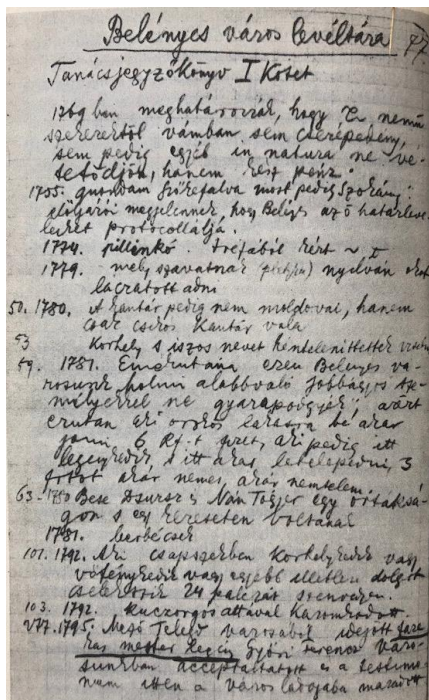 Belényes város levéltára
77
Tanácsjegyzőkönyv I Kötet
1769 ben meghatározzák, hogy nemű
szerektől vámban sem cserepedény,
sem pedig egyéb in natura ne vé-
tetődjön, hanem kész pénz
1755. quondam Szikefalva most pedig Szokány
elöljárói megjelennek, hogy Belényes az ő határleve-
leiket protocollálja.
1774. pillinkó. tréfából kért
1779. mely szavatnak nyelván
laczatott adni
50. 1780. A kantár pedig nem moldovai, hanem
csak csikós kantár vala
53 Korhely s iszos nevet
59. 1781. Ennekutánna ezen Belényes vá-
rosunk holmi alábbvaló jobbágyos sze-
mélyekkel ne gyarapodgyék, azért
ezután aki örökös lakásra bé akar
jönni 6 Rf.t fizet, aki pedig itt
legénykedik, s itt akar letelepedni, 3
frtot akár nemes, akár nemtelen
63. 1780 Bese Asurss s Nán Togyer egy órtaksá-
gon s egy kereseten voltának
1781. berbécsek
101. 1792. Aki csapszékben korhelykedik vagy
vőfénykedik vagy egyébb illetlen dolgot
cselekszik 24 pálczát szenvedjen.
103. 1792. kuczorgós attával káromkodott
V77. 1795. Mező Telegd városából idejött
mester legény Győri Ferencz váro-
sunkban acceptáltatott és a testimo-
nium itten a város ládájába maradott